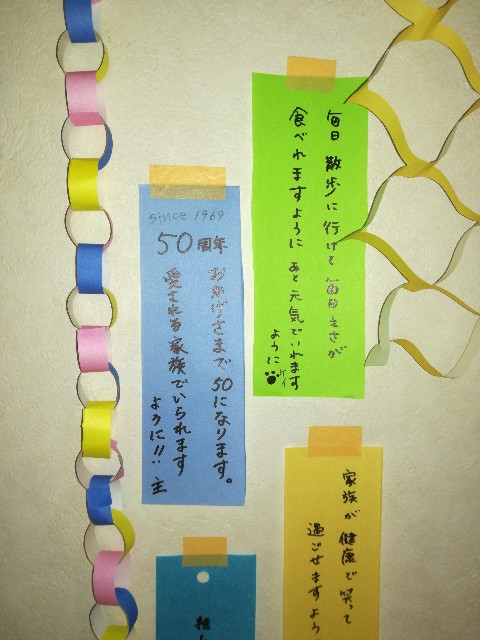 毎日散歩に行けて毎日えさが
食べれますように あと元気でいれます
ように
ケイ
since 1969
50周年
おかげさまで50になります。
愛される家族でいられます
ように!! 主
家族が健康で笑って
過ごせますよう
推し